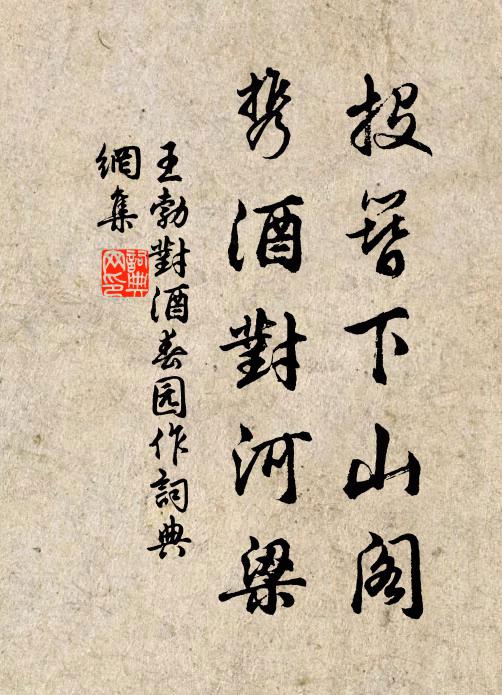 投簪下山阁
携酒對河梁
王勃對酒春园作詞典
網集
詞典
网印